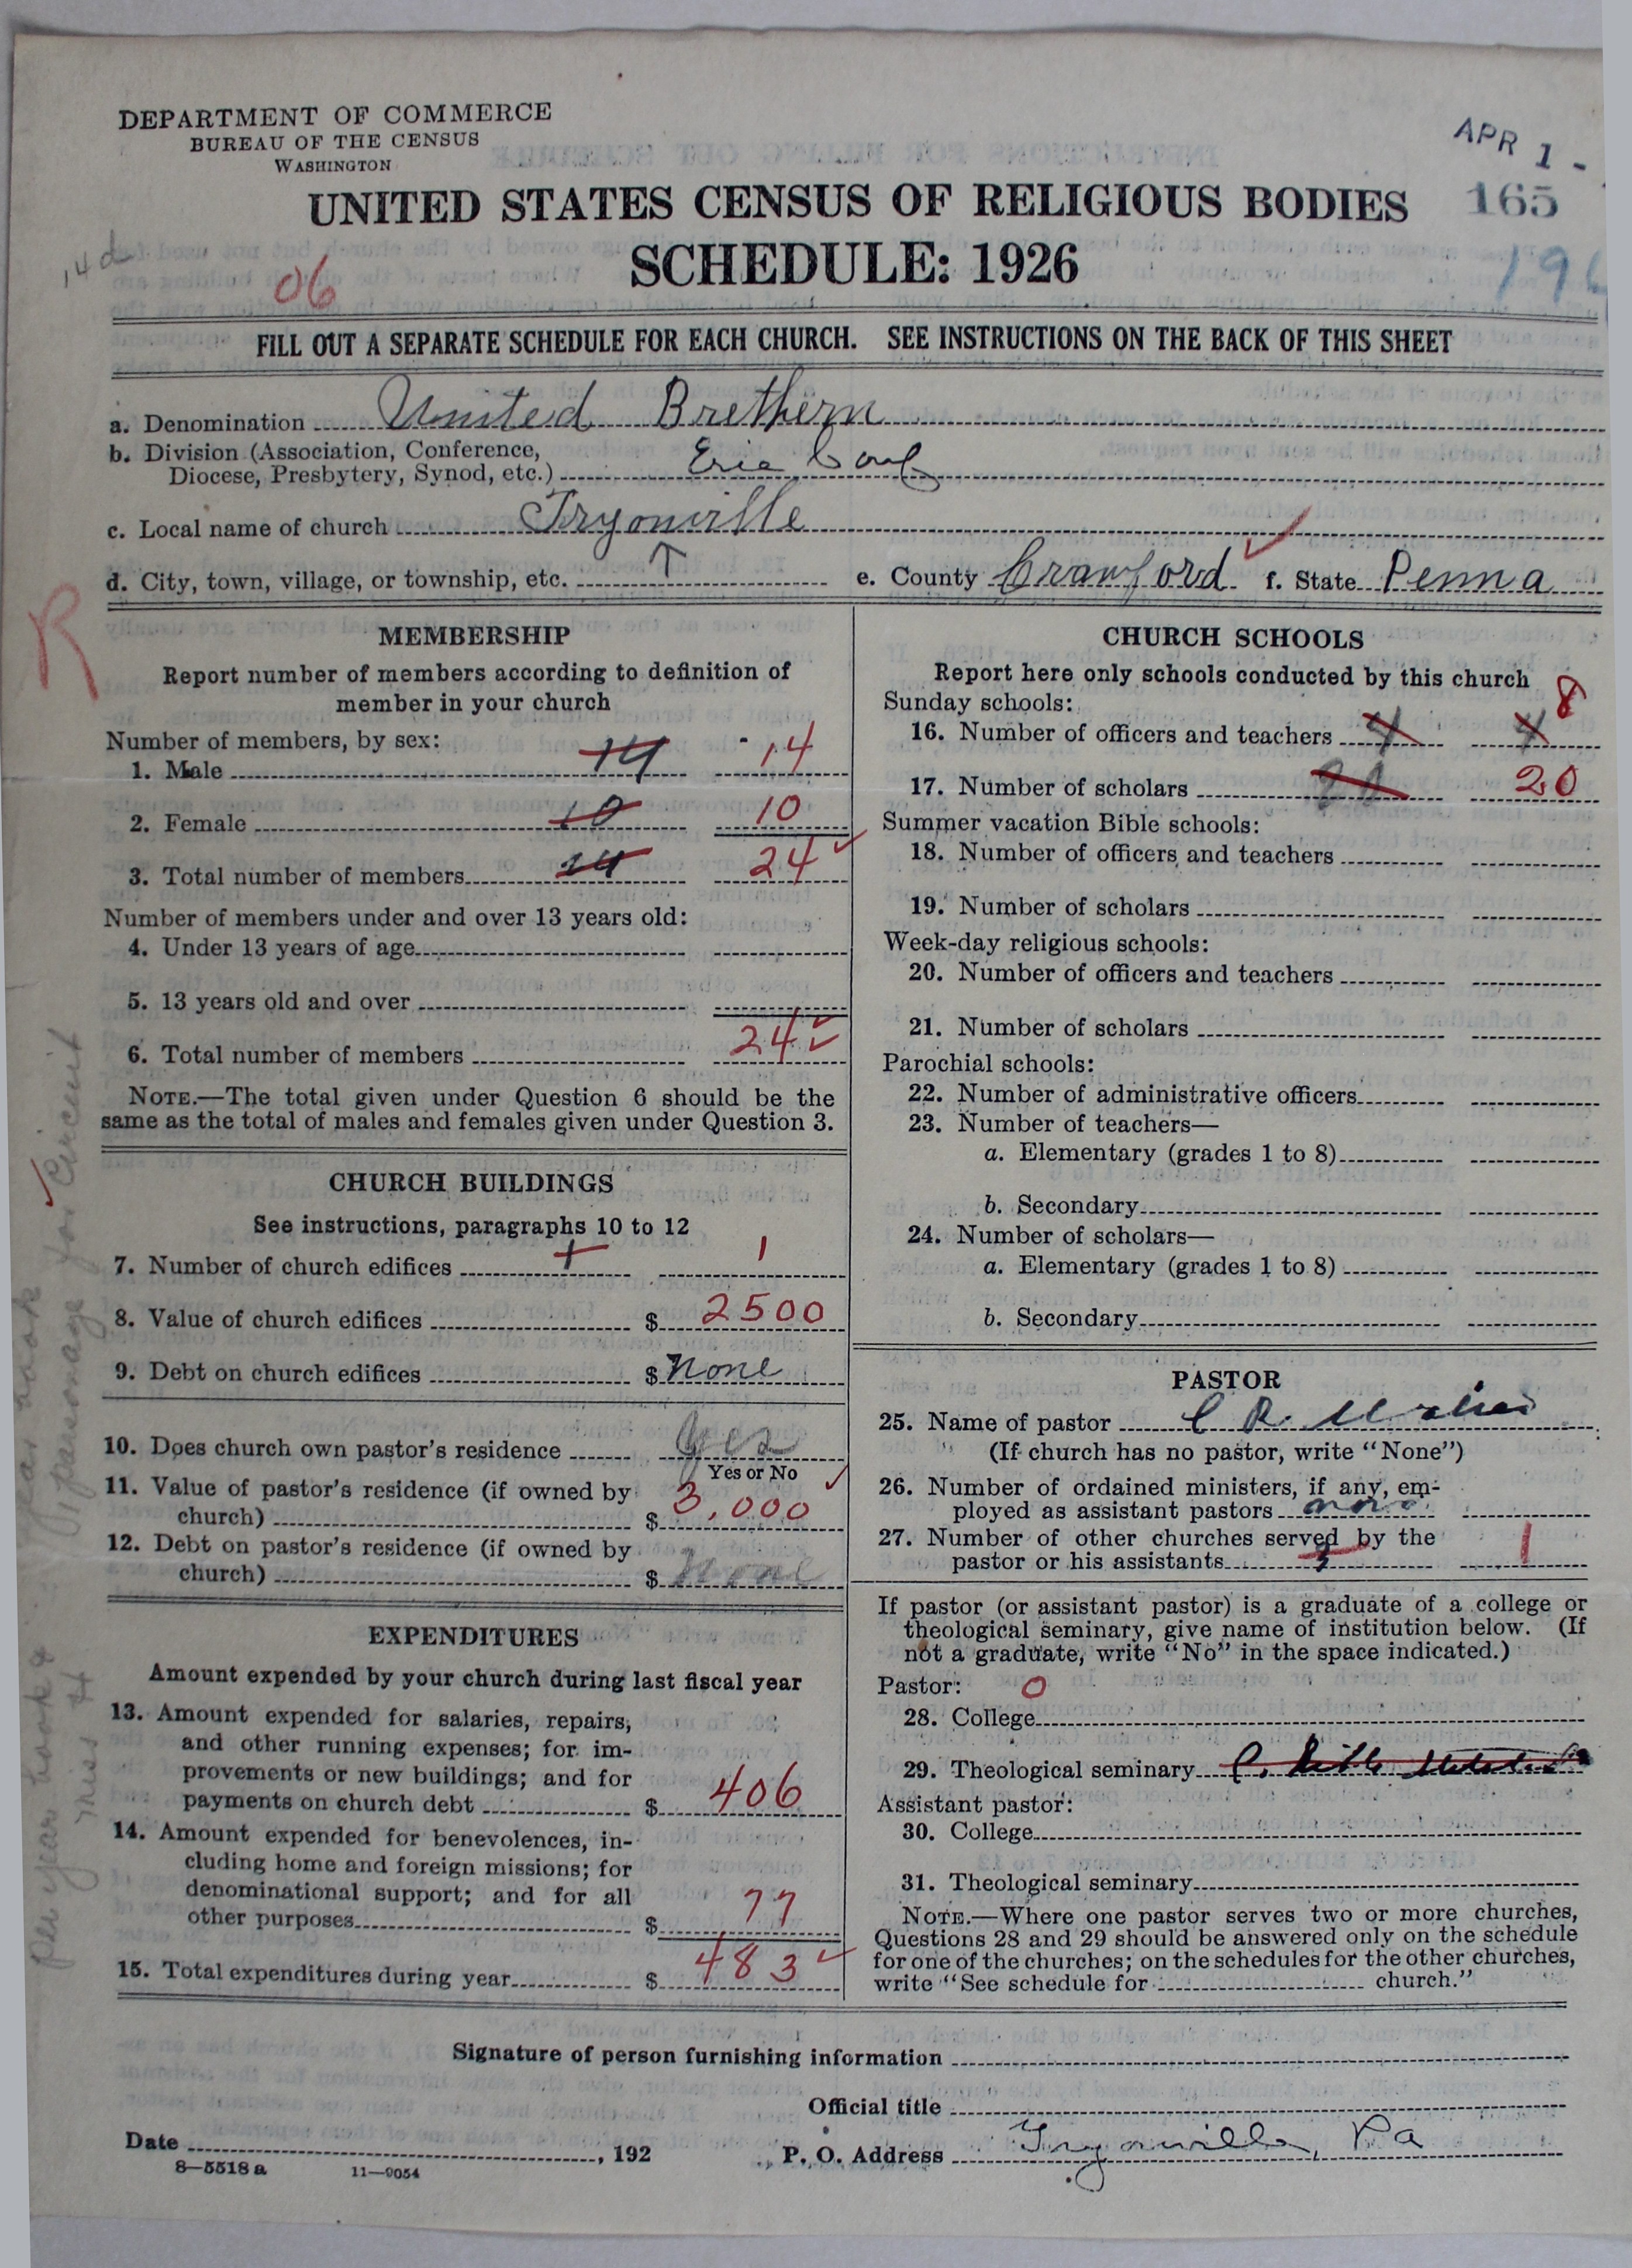 DEPARTMENT OF COMMERCE
BUREAU OF THE CENSUS
WASHINGTON
APR 1 -
165
UNITED STATES CENSUS OF RELIGIOUS BODIES
SCHEDULE: 1926
14d
06
196
FILL OUT A SEPARATE SCHEDULE FOR EACH CHURCH. SEE INSTRUCTIONS ON THE BACK OF THIS SHEET
a. Denomination United Brethern
b. Division (Association, Conference,
Diocese, Presbytery, Synod, etc.) Erie Conf
c. Local name of church Tryonville
d. City, town, village, or township, etc. ↑ e. County Crawford f. State Penna
R
MEMBERSHIP
Report number of members according to definition of
member in your church
Number of members, by sex:
1. Male 14 14
2. Female 10 10
3. Total number of members 24 24
Number of members under and over 13 years old:
4. Under 13 years of age
5. 13 years old and over
6. Total number of members 24
NOTE.—The total given under Question 6 should be the
same as the total of males and females given under Question 3.
CHURCH BUILDINGS
See instructions, paragraphs 10 to 12
7. Number of church edifices 1 1
8. Value of church edifices $ 2500
9. Debt on church edifices $ None
10. Does church own pastor's residence Yes
Yes or No
11. Value of pastor's residence (if owned by
church) $ 3,000
12. Debt on pastor's residence (if owned by
church) $ None
EXPENDITURES
Amount expended by your church during last fiscal year
13. Amount expended for salaries, repairs,
and other running expenses; for im-
provements or new buildings; and for
payments on church debt $ 406
14. Amount expended for benevolences, in-
cluding home and foreign missions; for
denominational support; and for all
other purposes $ 77
15. Total expenditures during year $ 483
CHURCH SCHOOLS
Report here only schools conducted by this church
Sunday schools:
16. Number of officers and teachers 4 4 8
17. Number of scholars 20 20
Summer vacation Bible schools:
18. Number of officers and teachers
19. Number of scholars
Week-day religious schools:
20. Number of officers and teachers
21. Number of scholars
Parochial schools:
22. Number of administrative officers
23. Number of teachers—
a. Elementary (grades 1 to 8)
b. Secondary
24. Number of scholars—
a. Elementary (grades 1 to 8)
b. Secondary
PASTOR
25. Name of pastor C R
(If church has no pastor, write "None")
26. Number of ordained ministers, if any, em-
ployed as assistant pastors none
27. Number of other churches served by the
pastor or his assistants 3 1
If pastor (or assistant pastor) is a graduate of a college or
theological seminary, give name of institution below. (If
not a graduate, write "No" in the space indicated.)
Pastor: 0
28. College
29. Theological seminary
Assistant pastor:
30. College
31. Theological seminary
NOTE.—Where one pastor serves two or more churches,
Questions 28 and 29 should be answered only on the schedule
for one of the churches; on the schedules for the other churches,
write "See schedule for church."
Signature of person furnishing information
Official title
Date , 192
P. O. Address Tryonville, Pa
8—5518 a 11—9054
per year book
this
parsonage for Circuit